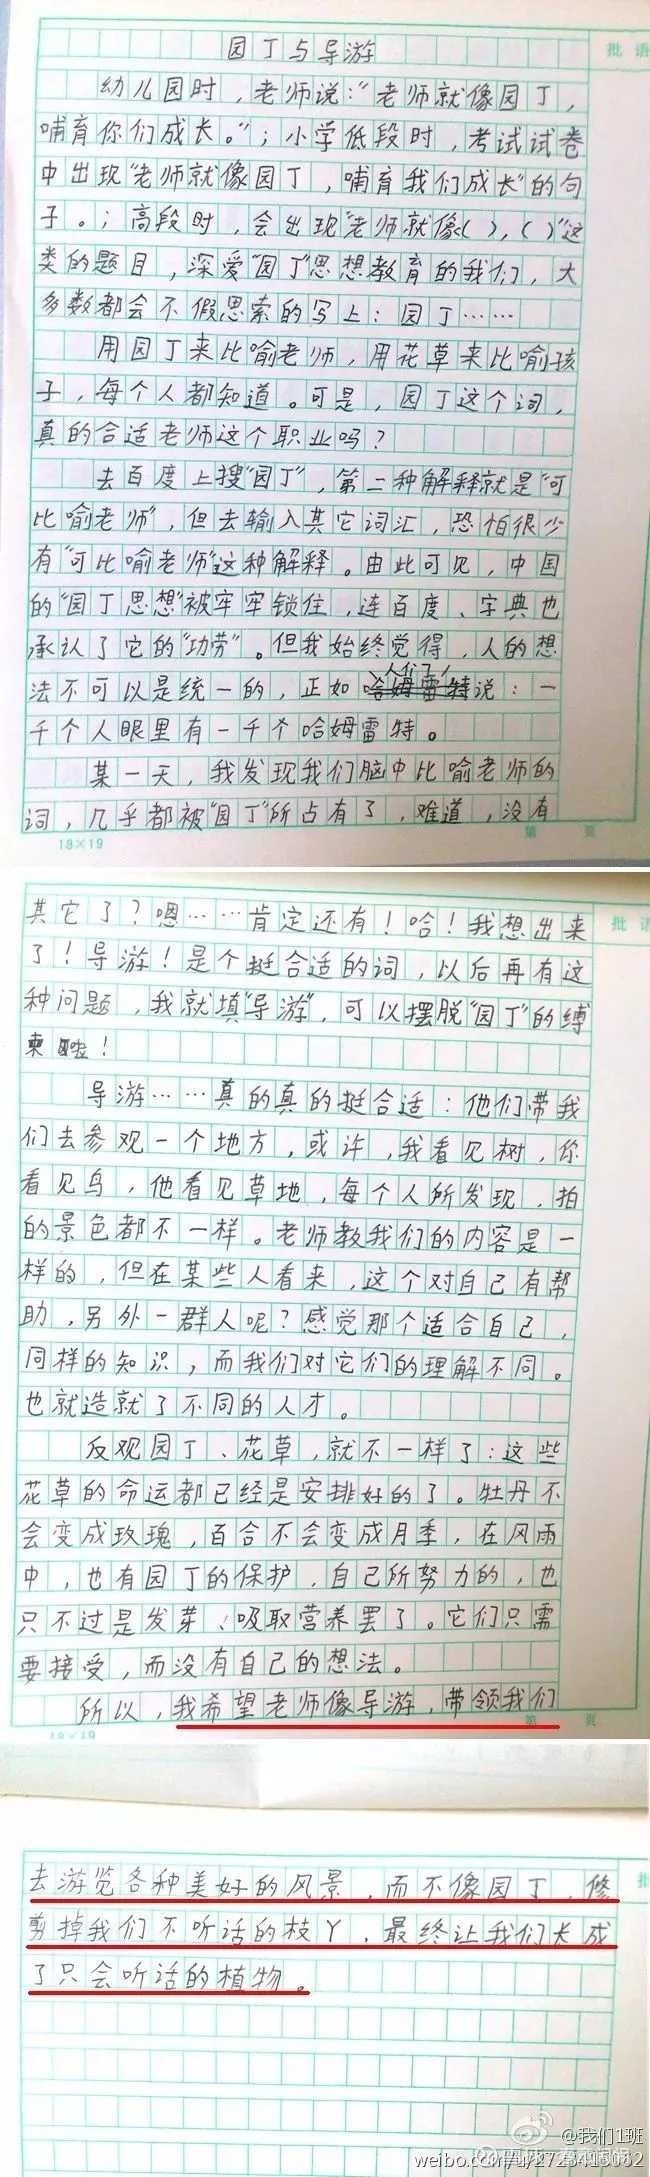 园丁与导游
批语
幼儿园时，老师说：“老师就像园丁，
哺育你们成长。”；小学低段时，考试试卷
中出现“老师就像园丁，哺育我们成长”的句
子。；高段时，会出现“老师就像（ ），（ ）”这
类的题目，深爱“园丁”思想教育的我们，大
多数都会不假思索的写上：园丁……
用园丁来比喻老师，用花草来比喻孩
子，每个人都知道。可是，园丁这个词，
真的合适老师这个职业吗？
去百度上搜“园丁”，第二种解释就是“可
比喻老师”，但去输入其它词汇，恐怕很少
有“可比喻老师”这种解释。由此可见，中国
的“园丁思想”被牢牢锁住，连百度、字典也
承认了它的“功劳”。但我始终觉得，人的想
法不可以是统一的，正如人们说：一
千个人眼里有一千个哈姆雷特。
某一天，我发现我们脑中比喻老师的
词，几乎都被“园丁”所占有了，难道，没有
18×19
第 页
其它了？嗯……肯定还有！哈！我想出来
批语
了！导游！是个挺合适的词，以后再有这
种问题，我就填“导游”，可以摆脱“园丁”的缚
束啦！
导游……真的真的挺合适：他们带我
们去参观一个地方，或许，我看见树，你
看见鸟，他看见草地，每个人所发现，拍
的景色都不一样。老师教我们的内容是一
样的，但在某些人看来，这个对自己有帮
助，另外一群人呢？感觉那个适合自己，
同样的知识，而我们对它们的理解不同。
也就造就了不同的人才。
反观园丁、花草，就不一样了：这些
花草的命运都已经是安排好的了。牡丹不
会变成玫瑰，百合不会变成月季，在风雨
中，也有园丁的保护，自己所努力的，也
只不过是发芽、吸取营养罢了。它们只需
要接受，而没有自己的想法。
所以，我希望老师像导游，带领我们
18×19
第 页
去游览各种美好的风景，而不像园丁，修
批
剪掉我们不听话的枝丫，最终让我们长成
了只会听话的植物。
@我们1班